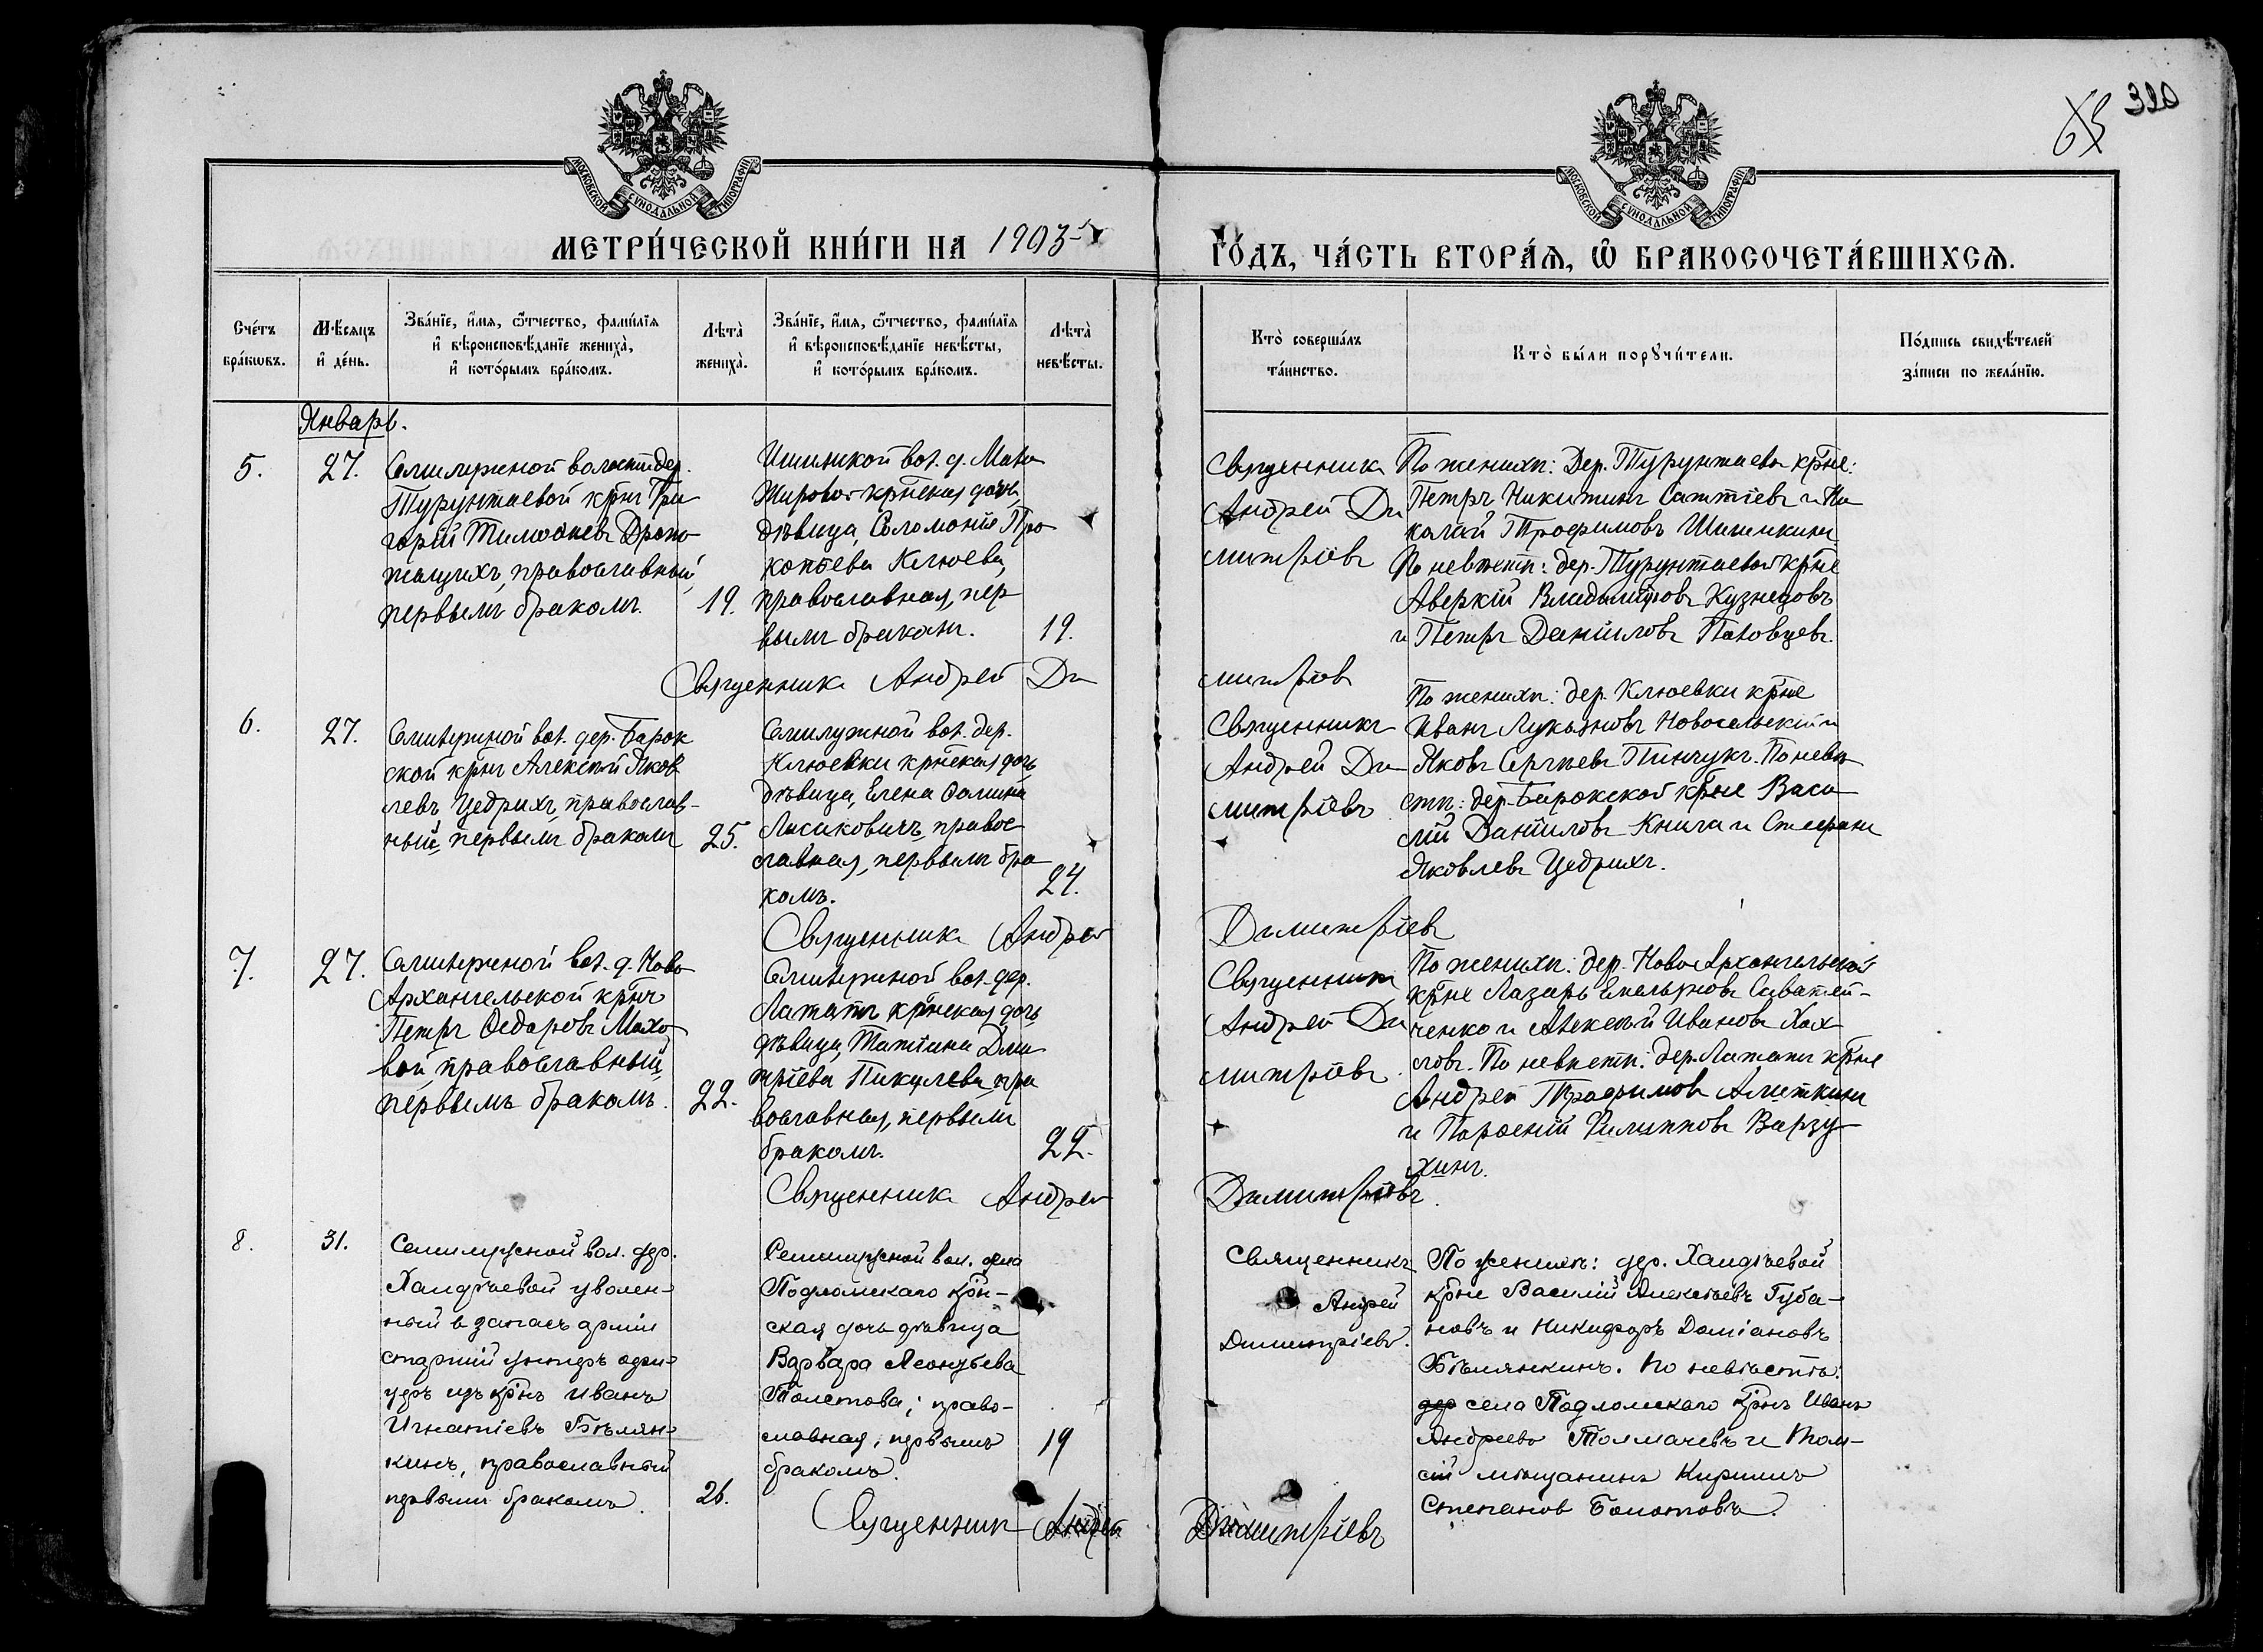 320
65
МОСКОВСКОЙ СѴНОДАЛЬНОЙ ТИПОГРАФІИ
МОСКОВСКОЙ СѴНОДАЛЬНОЙ ТИПОГРАФІИ
МЕТРИ́ЧЕСКОЙ КНИ́ГИ НА 1903-й
ГО́ДЪ, ЧА́СТЬ ВТОРА́Ѧ, Ѽ БРАКОСОЧЕТА́ВШИХСѦ.
Сче́тъ бра́кѡвъ.
Мѣ́сѧцъ и҆ де́нь.
Зва́нїе, и҆́мѧ, ѻ҆́тчество, фамї́лїѧ и҆ вѣроисповѣ́данїе жениха̀, и҆ кото́рымъ бра́комъ.
Лѣта̀ жениха̀.
Зва́нїе, и҆́мѧ, ѻ҆́тчество, фамї́лїѧ и҆ вѣроисповѣ́данїе невѣ́сты, и҆ кото́рымъ бра́комъ.
Лѣта̀ невѣ́сты.
Кто̀ соверша́лъ та́инство.
Кто̀ бы́ли порꙋчи́тели.
По́дпись свидѣ́телей за́писи по жела́нїю.
Январь.
5.
27.
Семилужной волости дер.
Турунтаевой крнъ Гри
горій Тимоѳеевъ
православный,
первымъ бракомъ.
19.
Ишимской вол. д. Мало
Жировой крнская дочь,
дѣвица, Соломонія Про
копьева Клюева,
православная, пер
вымъ бракомъ.
19.
Священникъ
Андрей Ди
митріевъ
По женихѣ: Дер. Турунтаевой крне:
Петръ Никитинъ и Ни
колай Трофимовъ Шишкинъ
По невѣстѣ: дер. Турунтаевой крне
Аверкій Владиміровъ Кузнецовъ
и Петръ Даниловъ Половцевъ.
Священникъ Андрей Ди
митріев
6.
27.
Семилужной вол. дер. Барок
ской крнъ Алексѣй Яков
левъ Цедрихъ, православ-
ный, первымъ бракомъ
25.
Семилужной вол. дер.
Клюевки крнская дочь
дѣвица, Елена Ѳомина
Лисиковичъ, правос
лавная, первымъ бра
комъ.
24.
Священникъ
Андрей Ди
митріевъ
По женихѣ: дер. Клюевки крне
Иванъ Лукьяновъ Новосельскій и
Яковъ Сергѣевъ Пинчукъ. По невѣ
стѣ: дер. Барокской крне Васи
лій Даниловъ Книга и Стефанъ
Яковлевъ Цедрихъ.
Священникъ Андрей
Димитріевъ
7.
27.
Семилужной вол. д. Ново
Архангельской крнъ
Петръ Ѳедоровъ Махо
вой, православный,
первымъ бракомъ.
22.
Семилужной вол. дер.
Лататъ крнская дочь
дѣвица, Татіана Дми
тріева Пикулева, пра
вославная, первымъ
бракомъ.
22.
Священникъ
Андрей Ди
митріевъ
По женихѣ: дер. Ново Архангельской
крне Лазарь Емельяновъ Саватей-
ченко и Алексѣй Ивановъ Хох
ловъ. По невѣстѣ: дер. Лататъ крне
Андрей Трофимовъ Алиткинъ
и Парѳеній Филипповъ Варзу
хинъ.
Священникъ Андрей
Димитріевъ.
8.
31.
Семилужной вол. дер.
Халдѣевой уволен-
ный в запасъ арміи
старшій унтеръ офи-
церъ изъ крнъ Иванъ
Игнатіевъ Бѣлян-
кинъ, православный
первымъ бракомъ.
26.
Семилужной вол. села
Подломскаго крн-
ская дочь дѣвица
Варвара Леонтьева
Толстова; право-
славная, первымъ
бракомъ.
19
Священникъ
Андрей
Димитріевъ.
По женихѣ: дер. Халдѣевой
крне Василій Алексѣевъ Губа-
новъ и Никифоръ Доміановъ
Бѣлянкинъ. По невѣстѣ:
дер села Подломскаго крнъ Иванъ
Андреевъ Толмачевъ и Том-
скій мѣщанинъ Кириллъ
Степановъ Болотовъ.
Священникъ Андрей
Димитріевъ